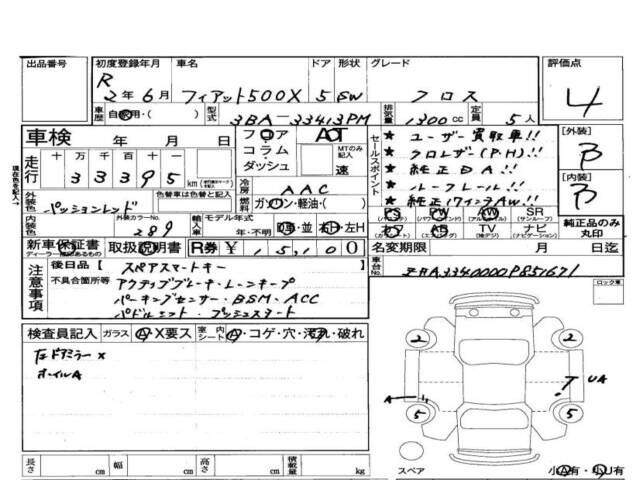 出品番号 初度登録年月 車名 ドア 形状 グレード 評価点
R 2年6月 フィアット500X 5 SW クロス 4
車歴 自家用・( ) 型式 3BA-33413PM 排気量 1300cc 定員 5人
車検 年 月 日 フロア AOT
コラム MTのみ記入
ダッシュ 速
走行 十万千百十一
33395 km
セールスポイント
★ ユーザー買取車!!
★ クロレザー(P.H)!!
★ 純正DA!!
★ ルーフレール!!
★ 純正17インチAW!!
[外装] B
[内装] B
純正品のみ丸印
現在色を記入→
外装色 パッションレッド 色替車は色替と記入
冷房 AAC
燃料 ガソリン・軽油・( )
内装色 外装カラーNo. 289
輸入車 モデル年式 年・不明 D車・並 右H・左H
PS (パワステ) PW (パワーウィンド) AW (アルミホイル) SR (サンルーフ)
カワ エアB TV (地デジ) ナビ
新車保証書 取扱説明書 R券 ¥ 15,100
ディーラー確認あるもの
名変期限 月 日迄
車台No. ZFA3340000P851671
注意事項 後日品 スペアスマートキー
不具合箇所等 アクティブブレーキ・レーンキープ
パーキングセンサー・BSM・ACC
パドルシフト・プッシュスタート
ロック車
検査員記入 ガラス A・X要ス 室内シート A・コゲ・穴・汚れ・破れ
右ドアミラー x
オイルA
2 2
A UA
5 5
長さ cm 幅 cm 高さ cm 積載量 kg
スペア 小A有・小U有